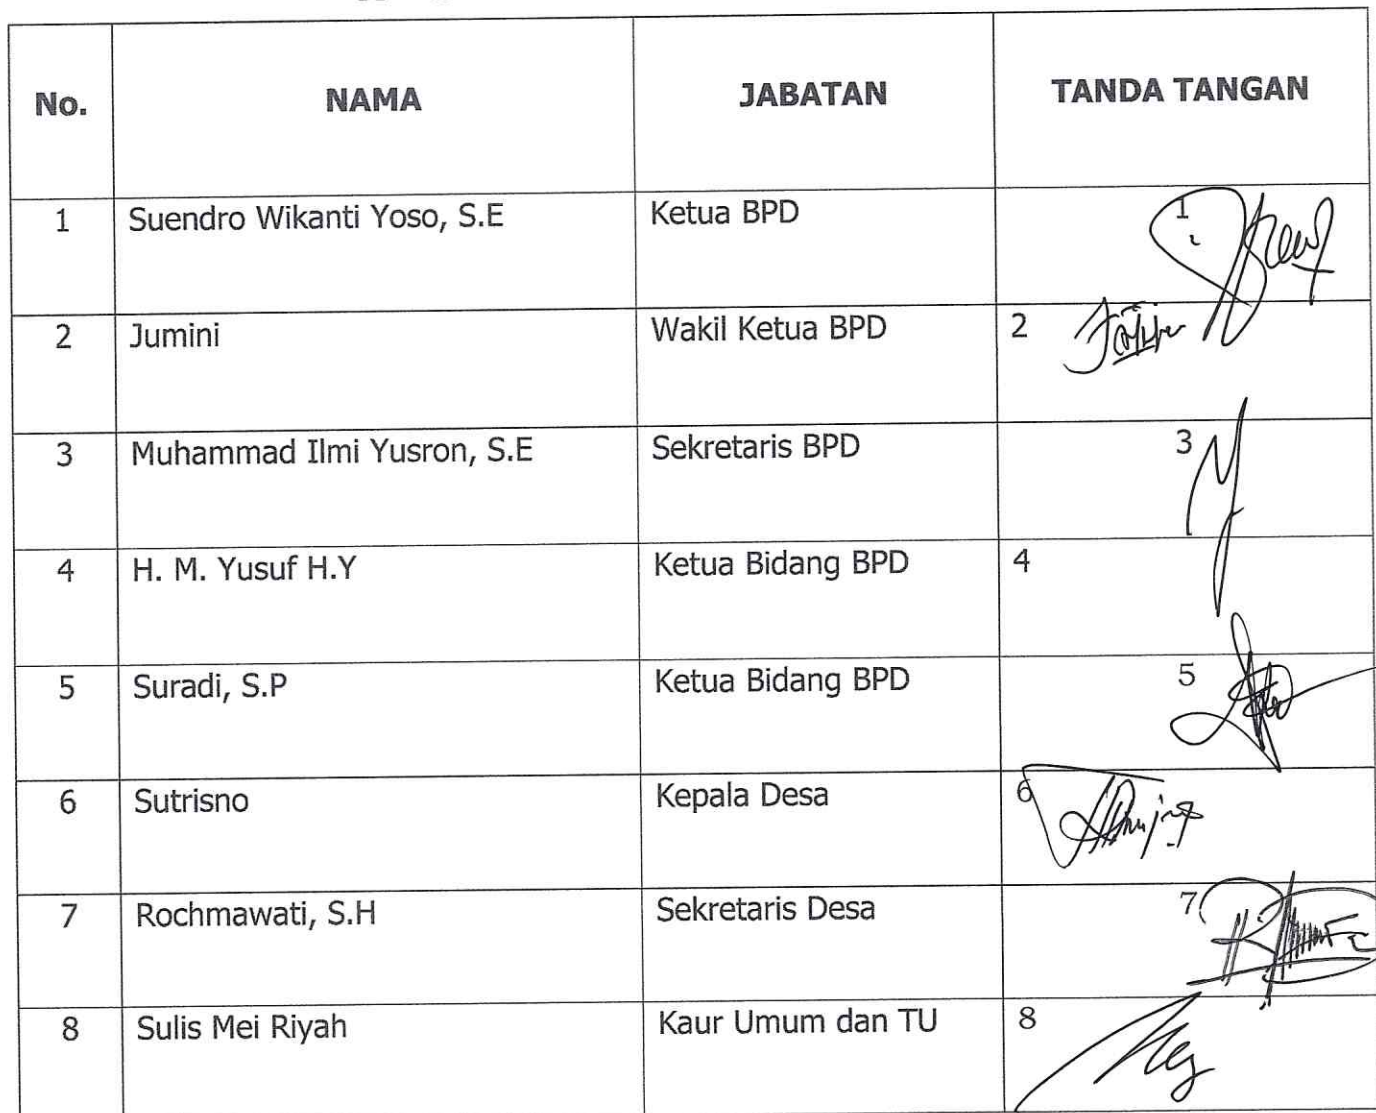 No. NAMA JABATAN TANDA TANGAN
1 Suendro Wikanti Yoso, S.E Ketua BPD 1
2 Jumini Wakil Ketua BPD 2
3 Muhammad Ilmi Yusron, S.E Sekretaris BPD 3
4 H. M. Yusuf H.Y Ketua Bidang BPD 4
5 Suradi, S.P Ketua Bidang BPD 5
6 Sutrisno Kepala Desa 6
7 Rochmawati, S.H Sekretaris Desa 7
8 Sulis Mei Riyah Kaur Umum dan TU 8